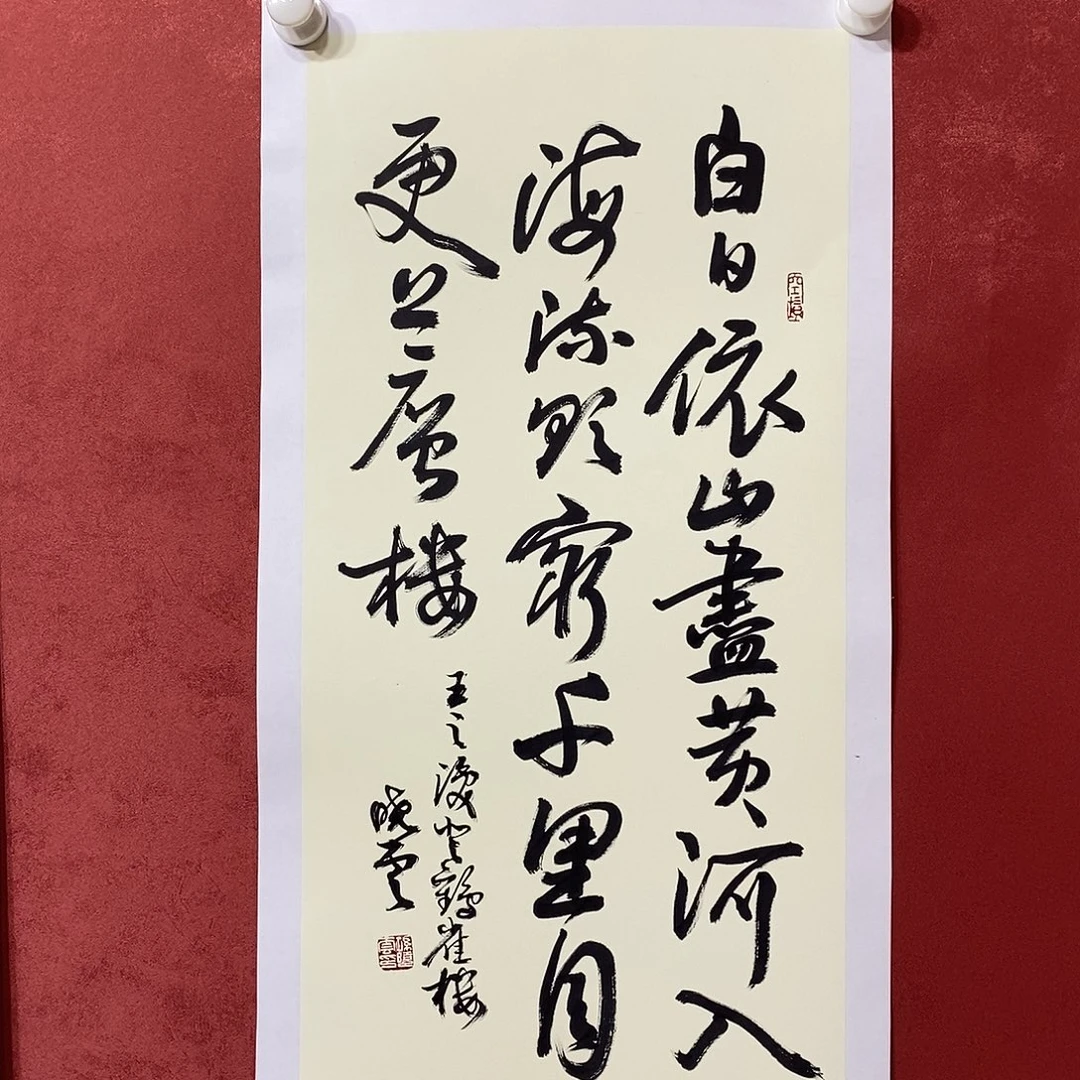 白日依山盡黄河入
海流欲窮千里目
更上一層樓
王之渙登鸛雀樓
曉雲